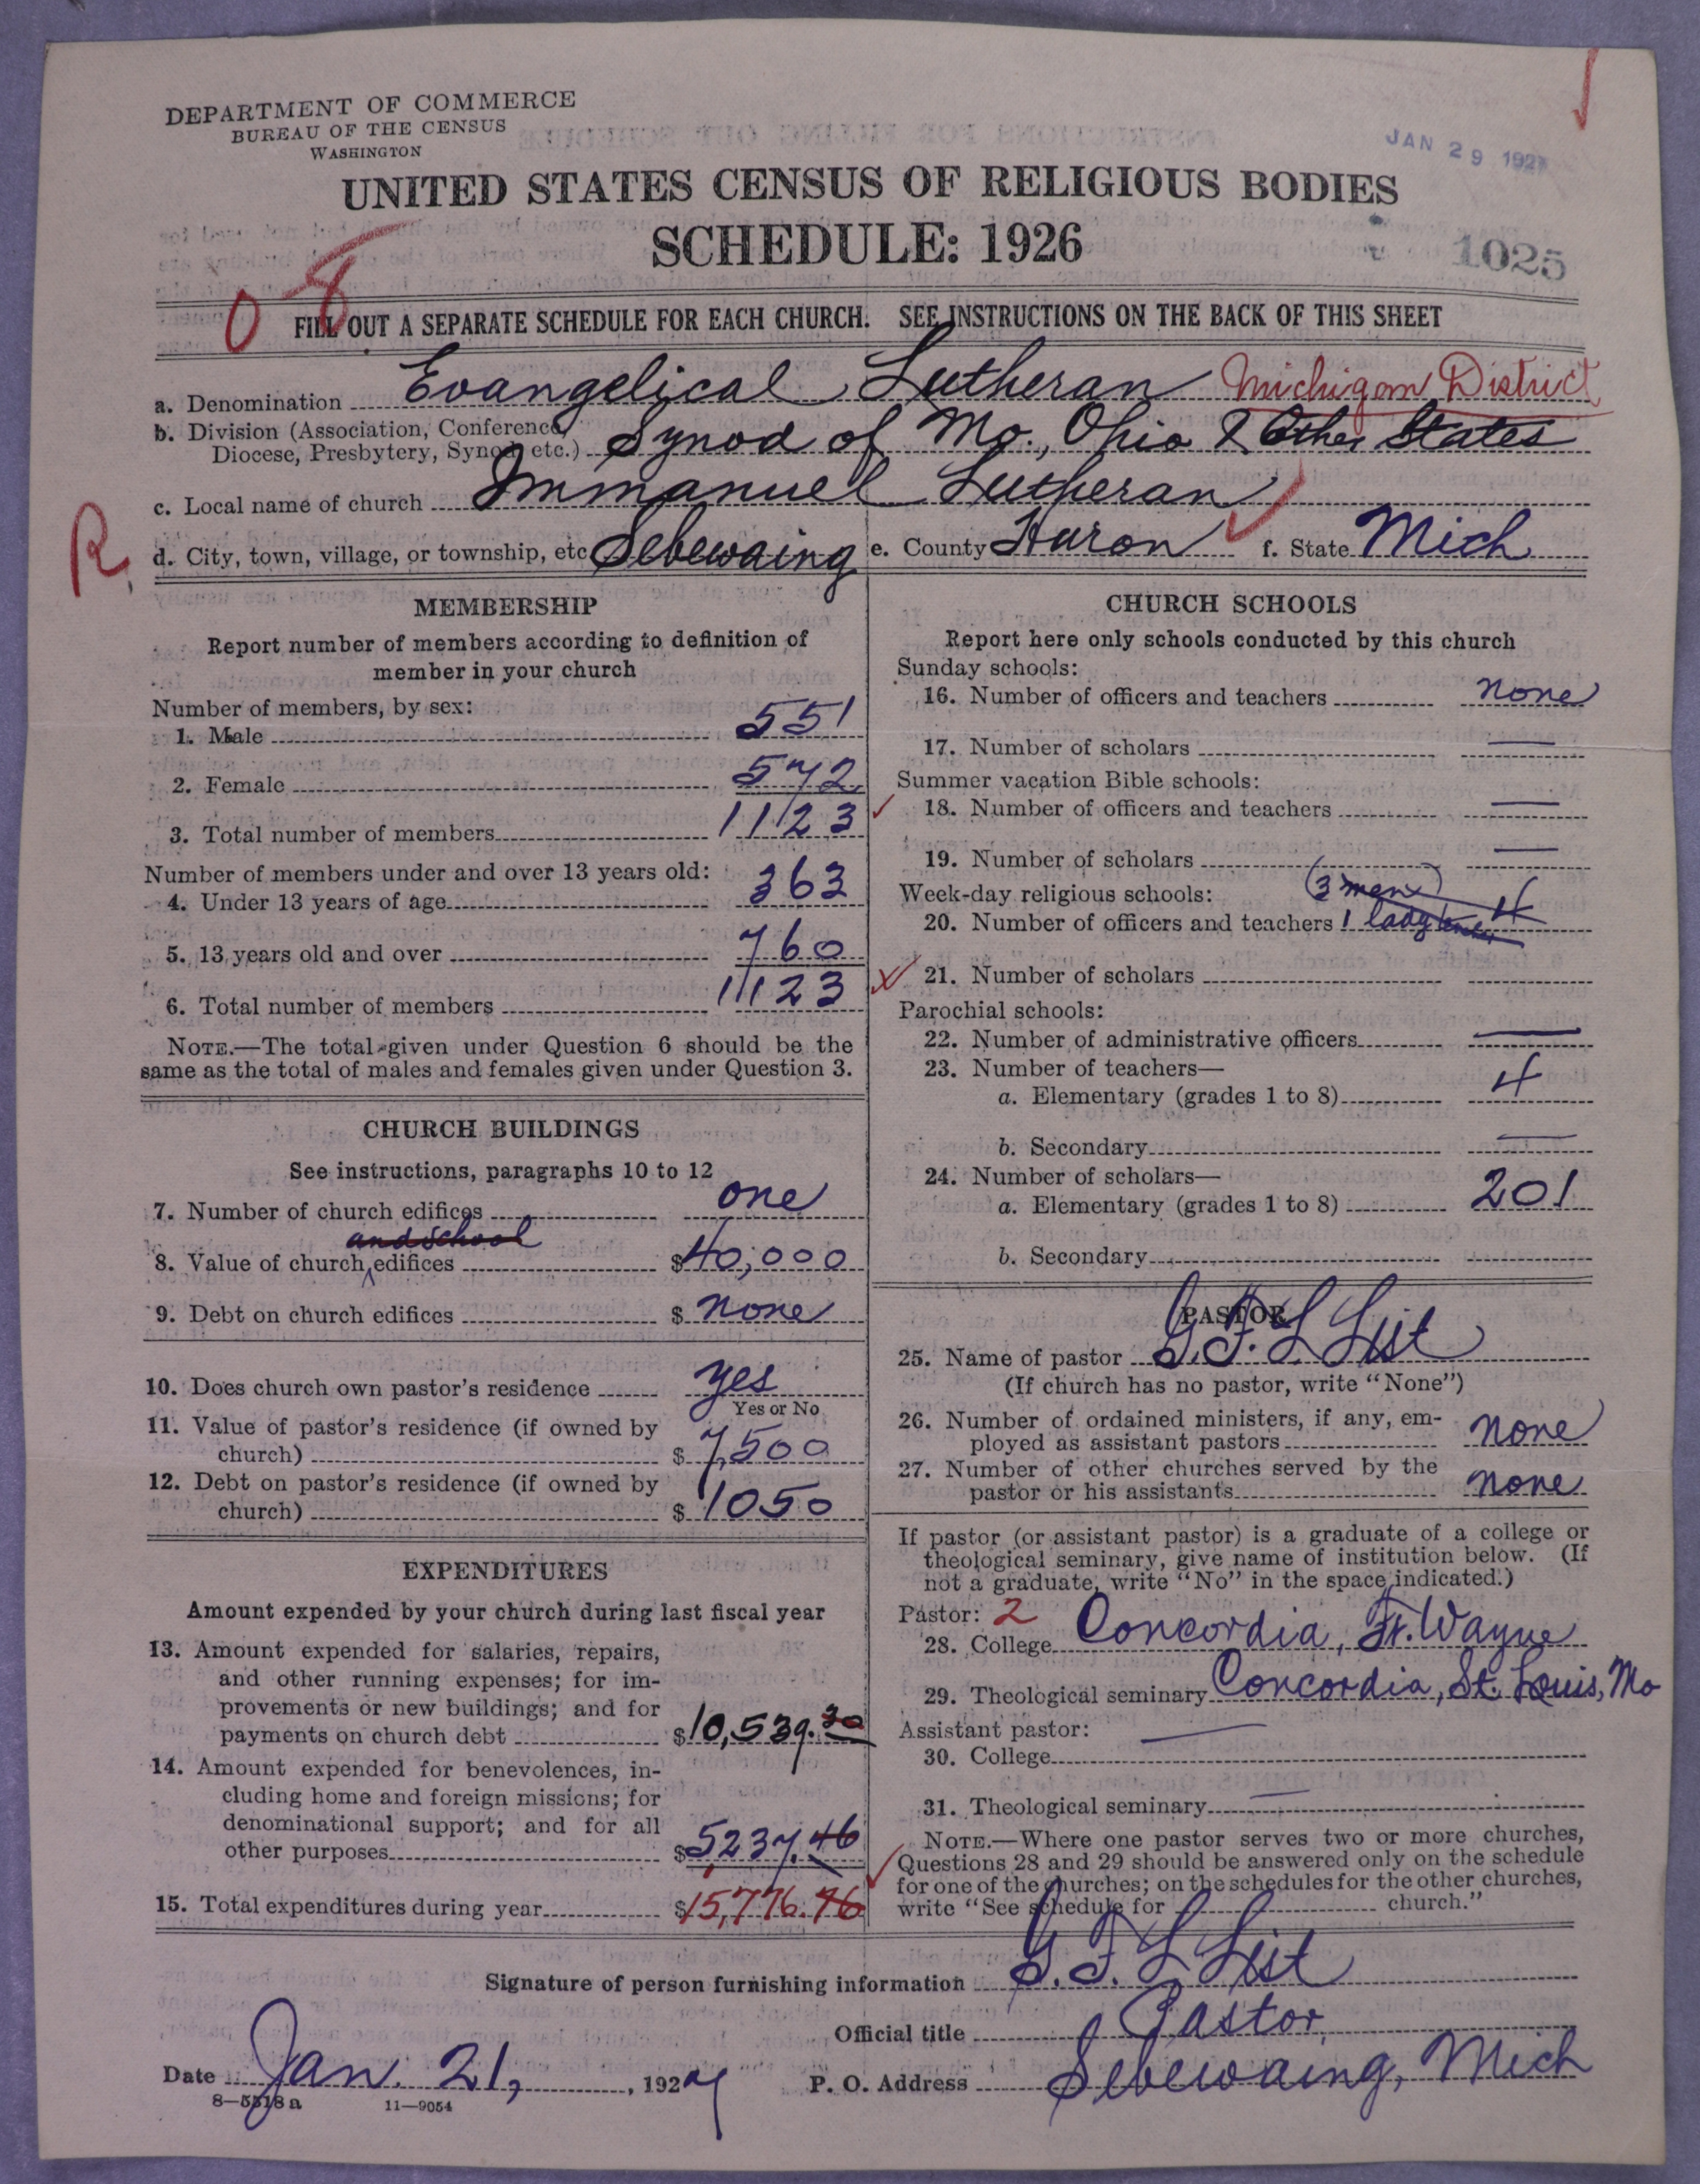 DEPARTMENT OF COMMERCE
BUREAU OF THE CENSUS
WASHINGTON
JAN 29 192
UNITED STATES CENSUS OF RELIGIOUS BODIES
SCHEDULE: 1926
1025
0 8
FILL OUT A SEPARATE SCHEDULE FOR EACH CHURCH. SEE INSTRUCTIONS ON THE BACK OF THIS SHEET
a. Denomination Evangelical Lutheran Michigan District
b. Division (Association, Conference,
Diocese, Presbytery, Synod, etc.) Synod of Mo., Ohio & Other States
c. Local name of church Immanuel Lutheran
R
d. City, town, village, or township, etc Sebewaing e. County Huron f. State Mich
MEMBERSHIP
Report number of members according to definition of
member in your church
Number of members, by sex:
1. Male 551
2. Female 572
3. Total number of members 1123
Number of members under and over 13 years old:
4. Under 13 years of age 363
5. 13 years old and over 760
6. Total number of members 1123
NOTE.—The total given under Question 6 should be the
same as the total of males and females given under Question 3.
CHURCH BUILDINGS
See instructions, paragraphs 10 to 12
7. Number of church edifices one
and school
8. Value of church edifices $40,000
9. Debt on church edifices $ none
10. Does church own pastor's residence yes
Yes or No
11. Value of pastor's residence (if owned by
church) $ 7,500
12. Debt on pastor's residence (if owned by
church) $ 1050
EXPENDITURES
Amount expended by your church during last fiscal year
13. Amount expended for salaries, repairs,
and other running expenses; for im-
provements or new buildings; and for
payments on church debt $10,539.30
14. Amount expended for benevolences, in-
cluding home and foreign missions; for
denominational support; and for all
other purposes $5237.46
15. Total expenditures during year $15,776.76
CHURCH SCHOOLS
Report here only schools conducted by this church
Sunday schools:
16. Number of officers and teachers none
17. Number of scholars —
Summer vacation Bible schools:
18. Number of officers and teachers —
19. Number of scholars —
Week-day religious schools: (3 men)
20. Number of officers and teachers 1 lady 4
21. Number of scholars
Parochial schools:
22. Number of administrative officers —
23. Number of teachers—
a. Elementary (grades 1 to 8) 4
b. Secondary —
24. Number of scholars—
a. Elementary (grades 1 to 8) 201
b. Secondary
PASTOR
25. Name of pastor G. F. L List
(If church has no pastor, write "None")
26. Number of ordained ministers, if any, em-
ployed as assistant pastors none
27. Number of other churches served by the
pastor or his assistants none
If pastor (or assistant pastor) is a graduate of a college or
theological seminary, give name of institution below. (If
not a graduate, write "No" in the space indicated.)
Pastor: 2
28. College Concordia, Ft. Wayne
29. Theological seminary Concordia, St. Louis, Mo
Assistant pastor: —
30. College
31. Theological seminary —
NOTE.—Where one pastor serves two or more churches,
Questions 28 and 29 should be answered only on the schedule
for one of the churches; on the schedules for the other churches,
write "See schedule for church."
Signature of person furnishing information G. F. L List
Official title Pastor
Date Jan. 21, 1927 P. O. Address Sebewaing, Mich
8—5518 a 11—9054